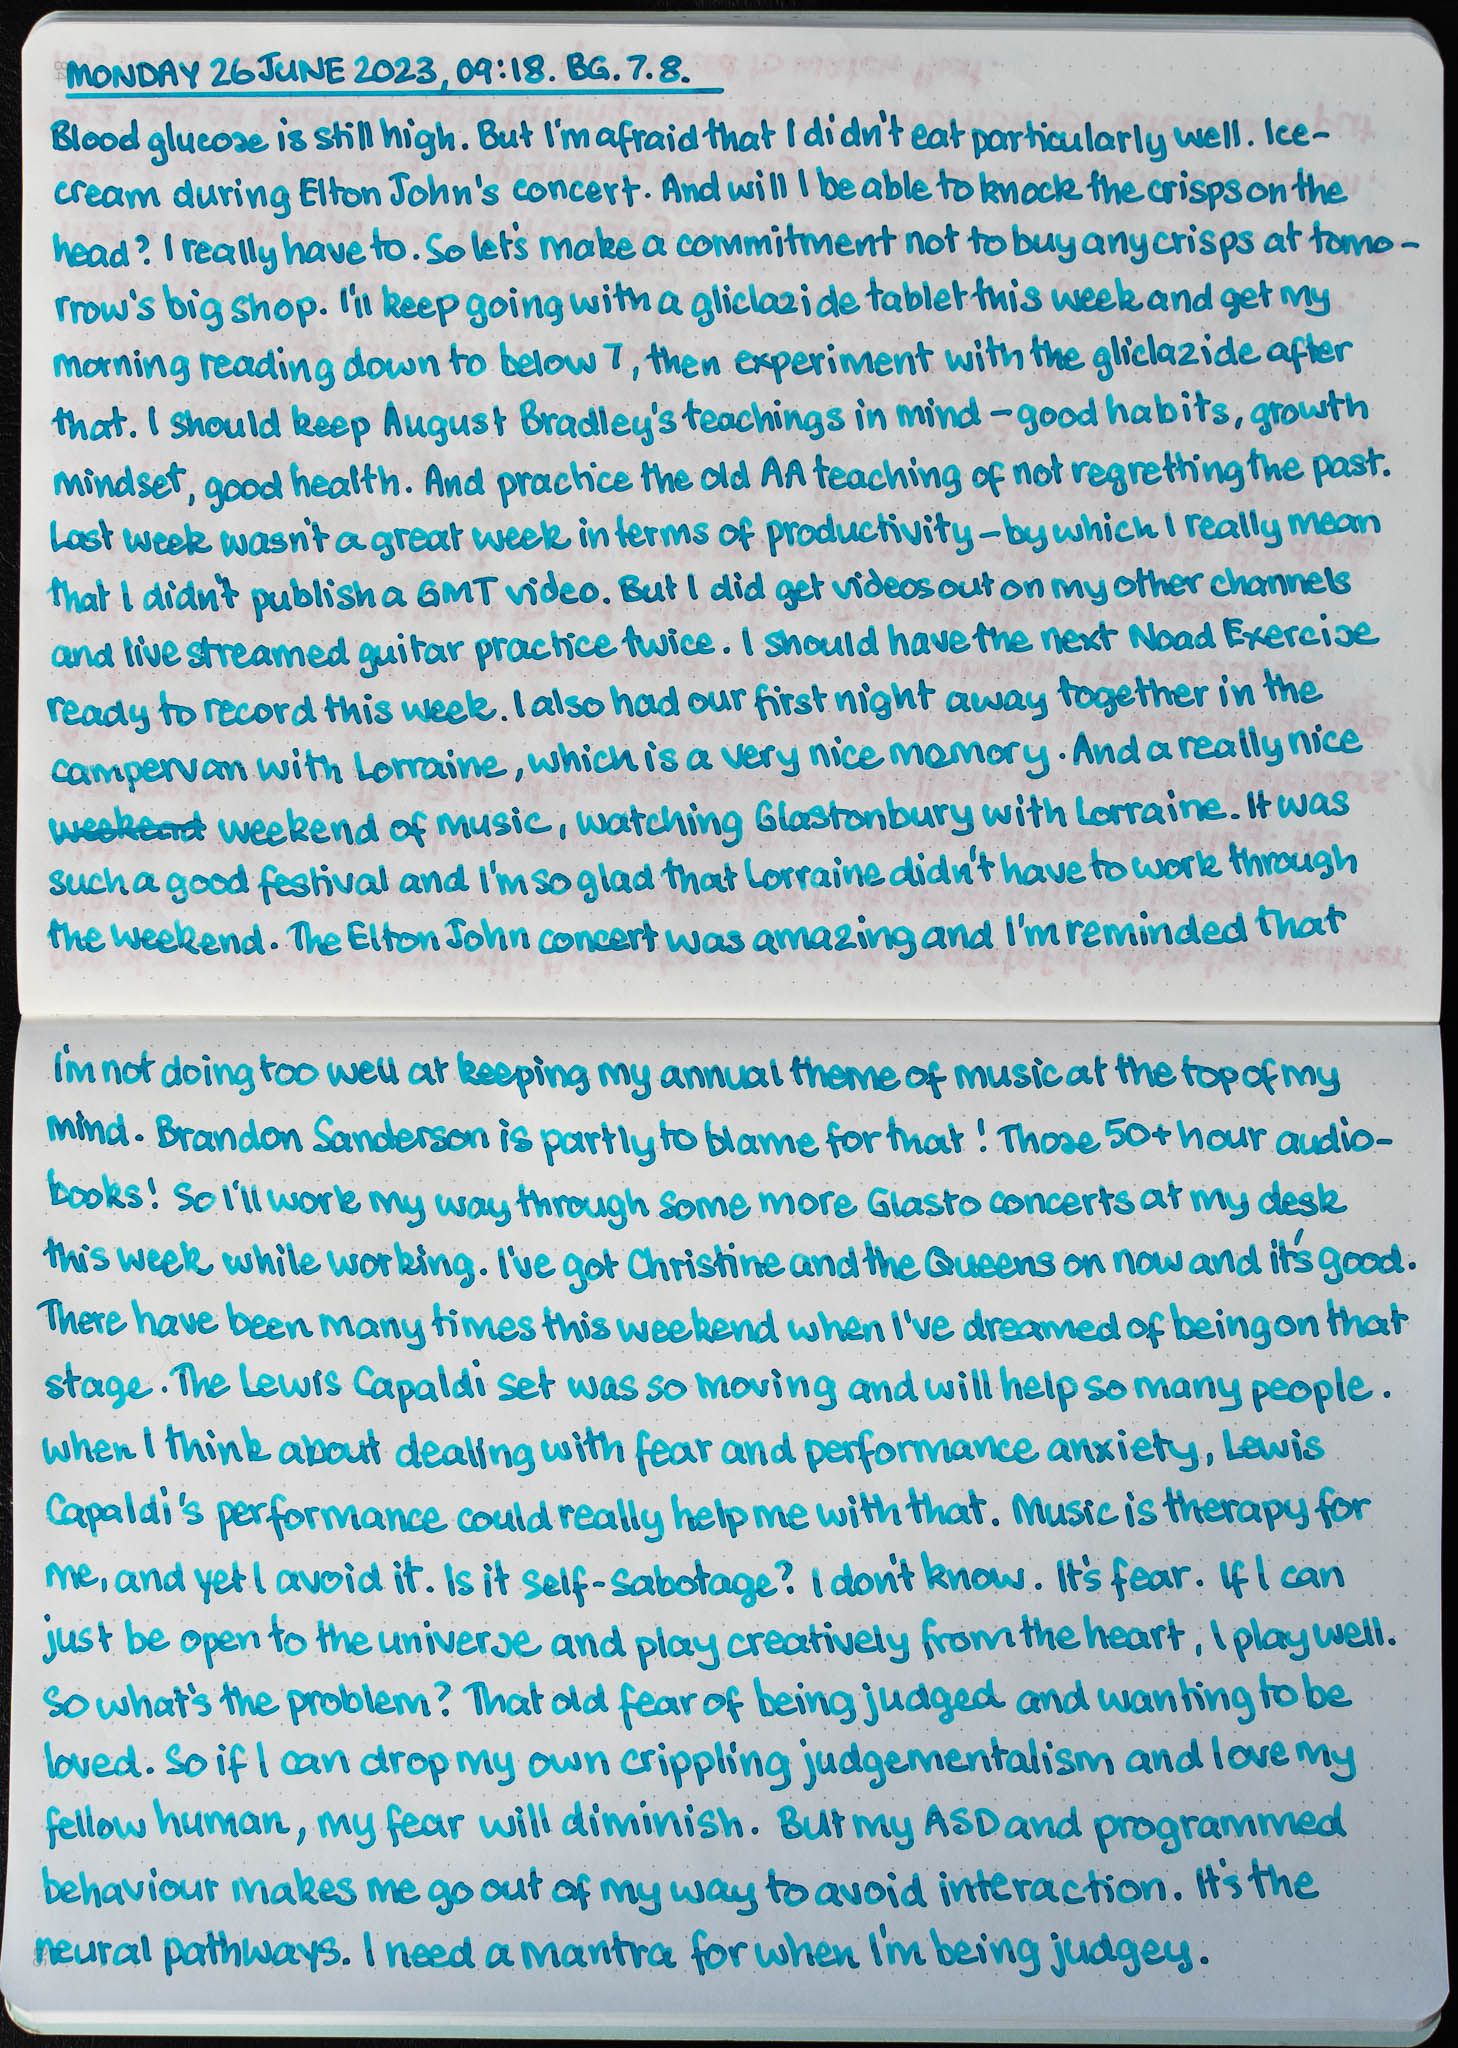 MONDAY 26 JUNE 2023, 09:18. BG. 7.8.
Blood glucose is still high. But I'm afraid that I didn't eat particularly well. Ice-
cream during Elton John's concert. And will I be able to knock the crisps on the
head? I really have to. So let's make a commitment not to buy any crisps at tomo-
rrow's big shop. I'll keep going with a gliclazide tablet this week and get my
morning reading down to below 7, then experiment with the gliclazide after
that. I should keep August Bradley's teachings in mind – good habits, growth
mindset, good health. And practice the old AA teaching of not regretting the past.
Last week wasn't a great week in terms of productivity – by which I really mean
that I didn't publish a GMT video. But I did get videos out on my other channels
and live streamed guitar practice twice. I should have the next Noad Exercise
ready to record this week. I also had our first night away together in the
campervan with Lorraine, which is a very nice memory. And a really nice
weekend weekend of music, watching Glastonbury with Lorraine. It was
such a good festival and I'm so glad that Lorraine didn't have to work through
the weekend. The Elton John concert was amazing and I'm reminded that
I'm not doing too well at keeping my annual theme of music at the top of my
mind. Brandon Sanderson is partly to blame for that! Those 50+ hour audio-
books! So I'll work my way through some more Glasto concerts at my desk
this week while working. I've got Christine and the Queens on now and it's good.
There have been many times this weekend when I've dreamed of being on that
stage. The Lewis Capaldi set was so moving and will help so many people.
When I think about dealing with fear and performance anxiety, Lewis
Capaldi's performance could really help me with that. Music is therapy for
me, and yet I avoid it. Is it self-sabotage? I don't know. It's fear. If I can
just be open to the universe and play creatively from the heart, I play well.
So what's the problem? That old fear of being judged and wanting to be
loved. So if I can drop my own crippling judgementalism and love my
fellow human, my fear will diminish. But my ASD and programmed
behaviour makes me go out of my way to avoid interaction. It's the
neural pathways. I need a mantra for when I'm being judgey.